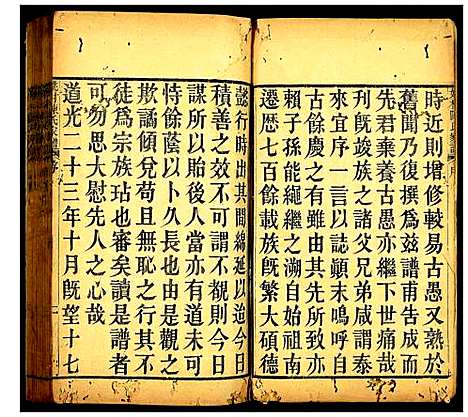 時近則增修較易古愚又熟於
舊聞乃復撰爲茲譜甫告成而
先君棄養古愚亦繼下世痛哉
刊既竣族之諸父兄咸謂泰
來宜序一言以誌顚末嗚呼自
古餘慶之有雖由其先世亦
賴子孫能繩繼之溯自始祖南
遷歷七百餘載族既繁大碩德
懿行時出其間綿延以迄今日
積善之效不可謂不覩則今日
謀所以貽後人當亦有道未可
恃餘蔭以卜久長也由是觀之
欺誦傾兌苟且無恥之行其不
徒爲宗族玷也審矣讀是譜者
可勿思大慰先人之心哉
道光二十三年十月既望十七